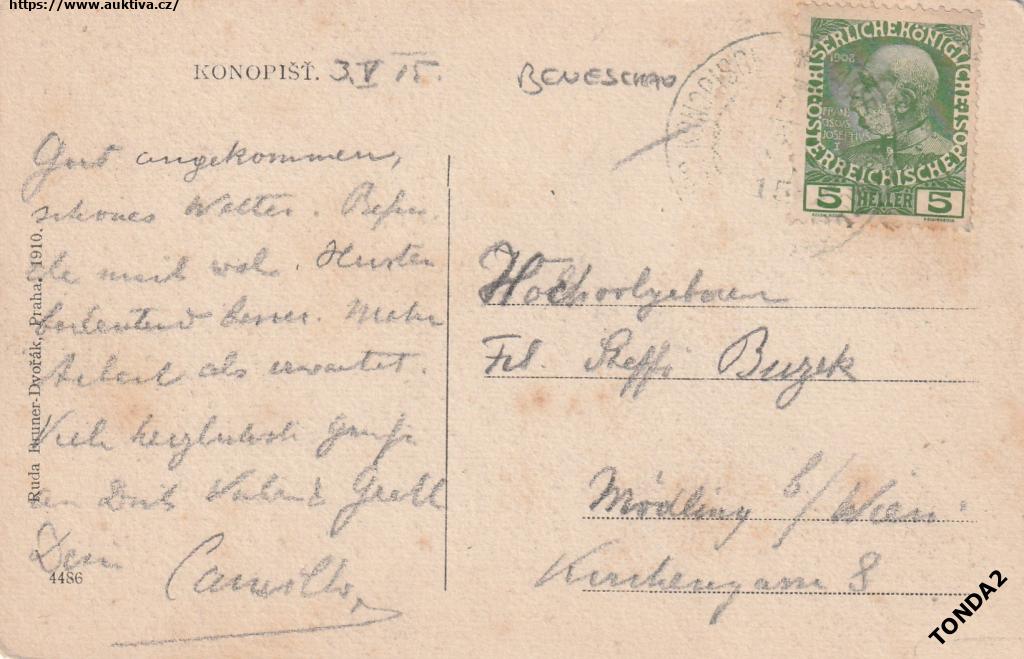 https://www.auktiva.cz/
KONOPIŠŤ. 3. V 15.
BENESCHAU
Gut angekommen,
schönes Wetter. Befin
de mich wohl. Husten
bedeutend besser. Mehr
Arbeit als erwartet.
Viele herzlichste Grüße
an Dich
Dein
Camillo
4486
Ruda Bruner-Dvořák, Praha, 1910.
KAISERLICHE KÖNIGLICHE ÖSTERREICHISCHE POST
FRANCISCUS JOSEPHUS I
5 HELLER 5
Hochwolgeboren
Frl. Steffi Buzek
Mödling b/Wien
Kirchengasse 8
TONDA2